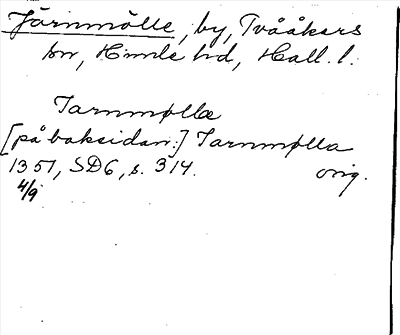 Järnmölle, by, Tvååkers
sn, Himle hd, Hall. l.
Iarnmøllæ
[på baksidan:] Iarnmølla
1351, SD6, s. 314. orig.
4/9